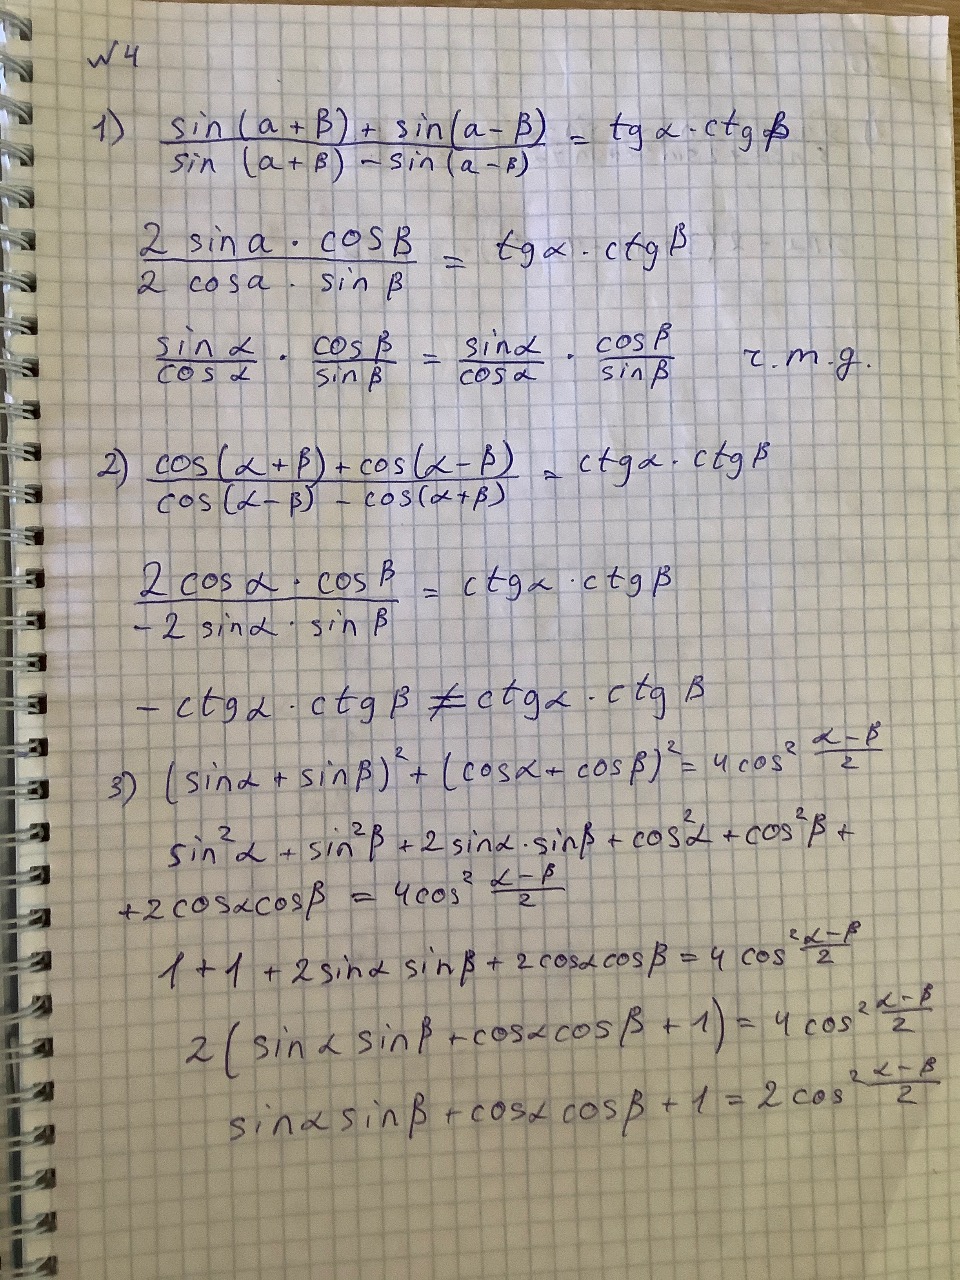 №4
1) (sin(a+β) + sin(a-β))/(sin(a+β) - sin(a-β)) = tgα·ctgβ
(2 sina · cosβ)/(2 cosa · sinβ) = tgα·ctgβ
sinα/cosα · cosβ/sinβ = sinα/cosα · cosβ/sinβ ч.т.д.
2) (cos(α+β)+cos(α-β))/(cos(α-β) - cos(α+β)) = ctgα·ctgβ
(2 cosα · cosβ)/(-2 sinα · sinβ) = ctgα·ctgβ
-ctgα·ctgβ ≠ ctgα·ctgβ
3) (sinα + sinβ)² + (cosα + cosβ)² = 4cos² (α-β)/2
sin²α + sin²β + 2sinα·sinβ + cos²α + cos²β +
+2cosαcosβ = 4cos² (α-β)/2
1+1+2sinα sinβ + 2cosαcosβ = 4 cos² (α-β)/2
2(sinα sinβ + cosαcosβ + 1) = 4cos² (α-β)/2
sinα sinβ + cosα cosβ + 1 = 2cos² (α-β)/2